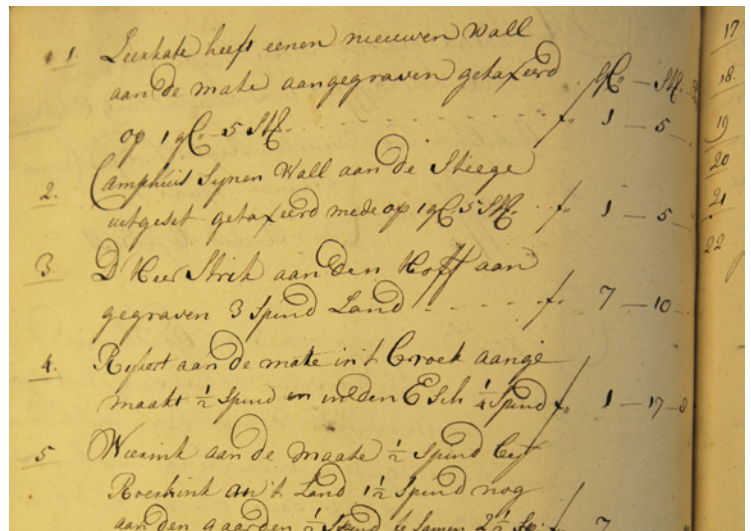 1. Leerkate heeft eenen nieuwen Wall
aan de mate aangegraven getaxeerd gl. - St.
op 1 gl. 5 St. f. 1 - 5 -
2. Camphuis synen Wall aan de Steege
uitgeset getaxeerd mede op 1 gl. 5 St. f. 1 - 5 -
3 D' Heer Strik aan den Hoff aan
gegraven 3 Spind Land f. 7 - 10 -
4. aan de mate in 't Broek aange
maakt ½ Spind en in den Esch ¼ Spind f. 1 - 17 - 8
5 Wierink aan de maate ½ Spind
Roerkink an 't Land 1½ Spind nog
aan den gaarden ½ Spind te samen 2½ Sp. f. 7
17
18.
19
20
21
22